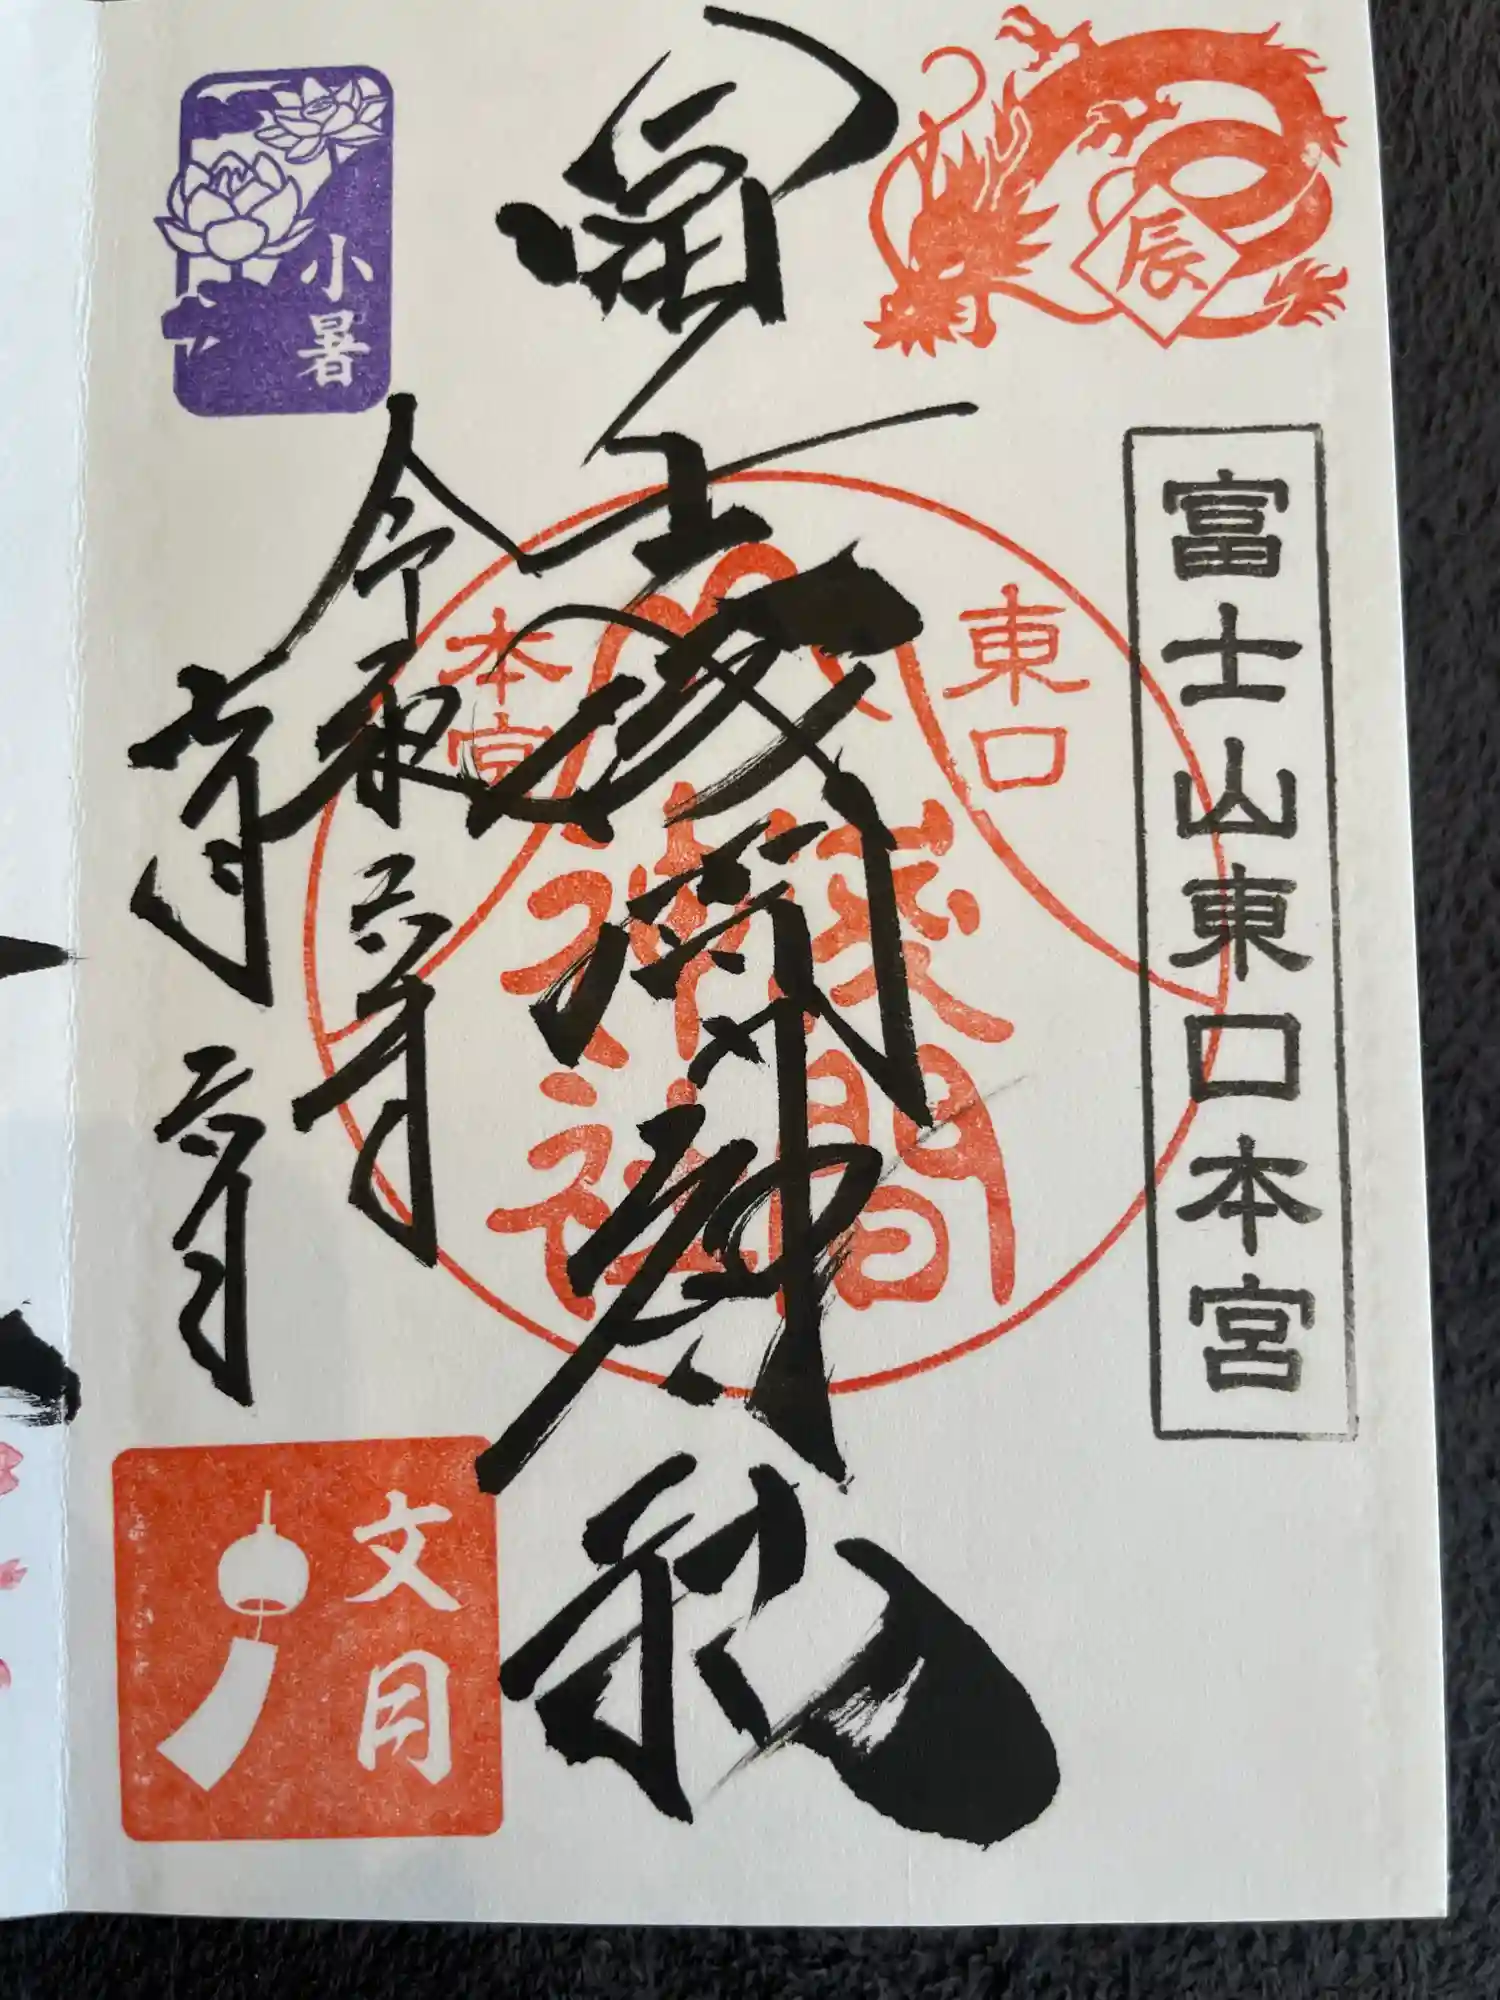 辰
富士山東口本宮
冨士浅間神社
東口
本宮
令和六年
小暑
文月